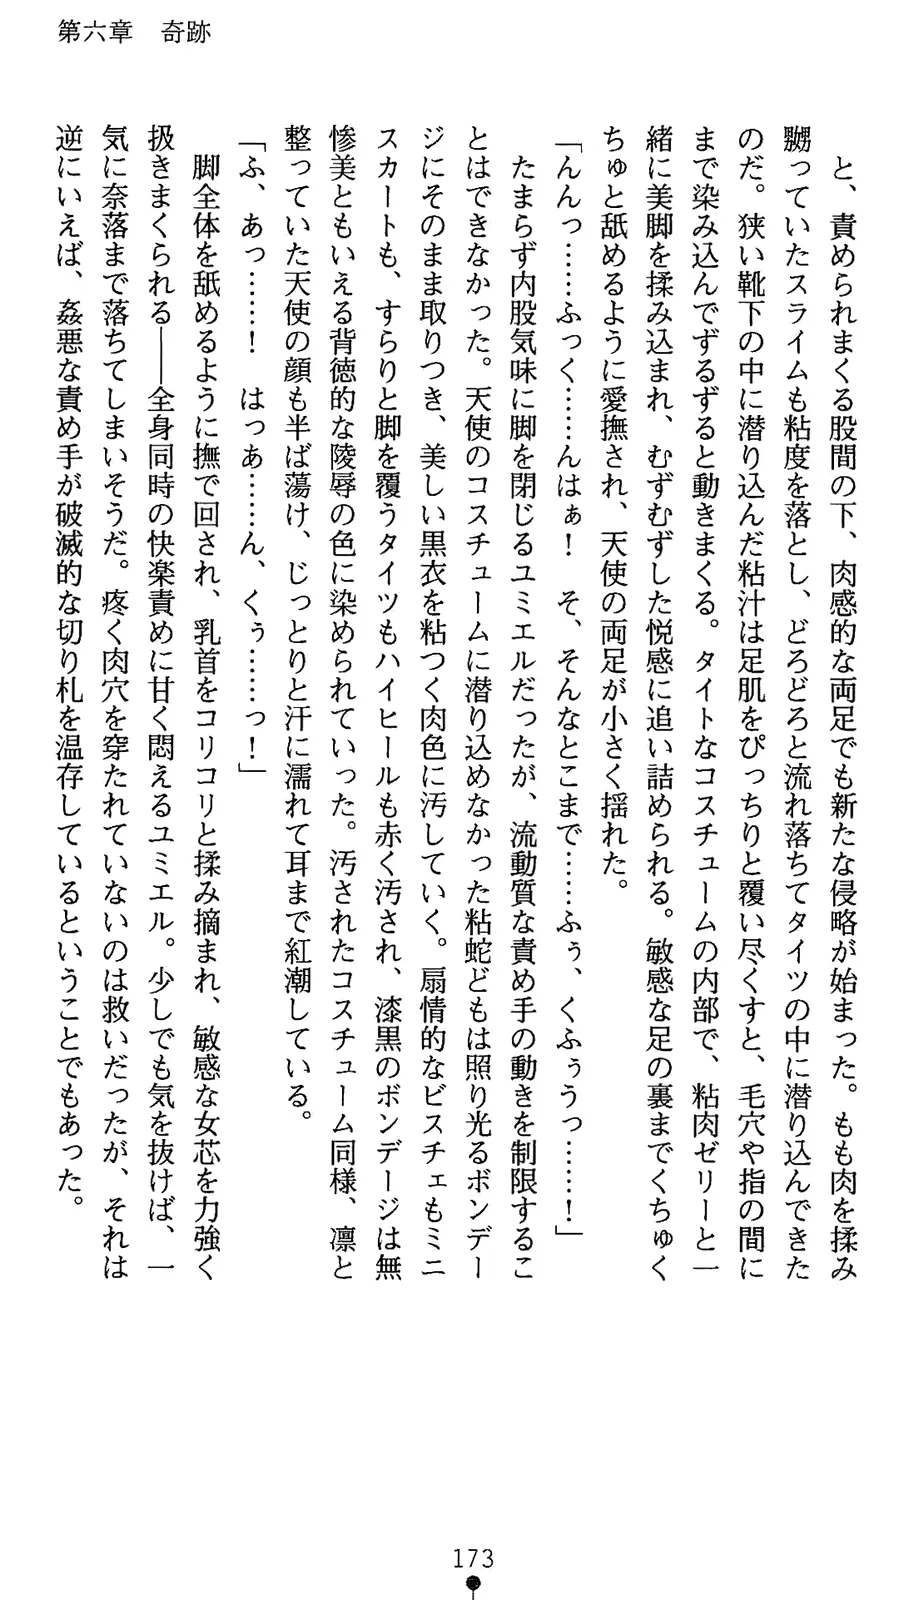 第六章　奇跡
と、責められまくる股間の下、肉感的な両足でも新たな侵略が始まった。もも肉を揉み
嬲っていたスライムも粘度を落とし、どろどろと流れ落ちてタイツの中に潜り込んできた
のだ。狭い靴下の中に潜り込んだ粘汁は足肌をぴっちりと覆い尽くすと、毛穴や指の間に
まで染み込んでずるずると動きまくる。タイトなコスチュームの内部で、粘肉ゼリーと一
緒に美脚を揉み込まれ、むずむずした悦感に追い詰められる。敏感な足の裏までくちゅく
ちゅと舐めるように愛撫され、天使の両足が小さく揺れた。
「んんっ……ふっく……んはぁ！　そ、そんなとこまで……ふぅ、くふぅうっ……！」
たまらず内股気味に脚を閉じるユミエルだったが、流動質な責め手の動きを制限するこ
とはできなかった。天使のコスチュームに潜り込めなかった粘蛇どもは照り光るボンデー
ジにそのまま取りつき、美しい黒衣を粘つく肉色に汚していく。扇情的なビスチェもミニ
スカートも、すらりと脚を覆うタイツもハイヒールも赤く汚され、漆黒のボンデージは無
惨美ともいえる背徳的な陵辱の色に染められていった。汚されたコスチューム同様、凛と
整っていた天使の顔も半ば蕩け、じっとりと汗に濡れて耳まで紅潮している。
「ふ、あっ……！　はっあ……ん、くぅ……っ！」
脚全体を舐めるように撫で回され、乳首をコリコリと揉み摘まれ、敏感な女芯を力強く
扱きまくられる――全身同時の快楽責めに甘く悶えるユミエル。少しでも気を抜けば、一
気に奈落まで落ちてしまいそうだ。疼く肉穴を穿たれていないのは救いだったが、それは
逆にいえば、姦悪な責め手が破滅的な切り札を温存しているということでもあった。
173